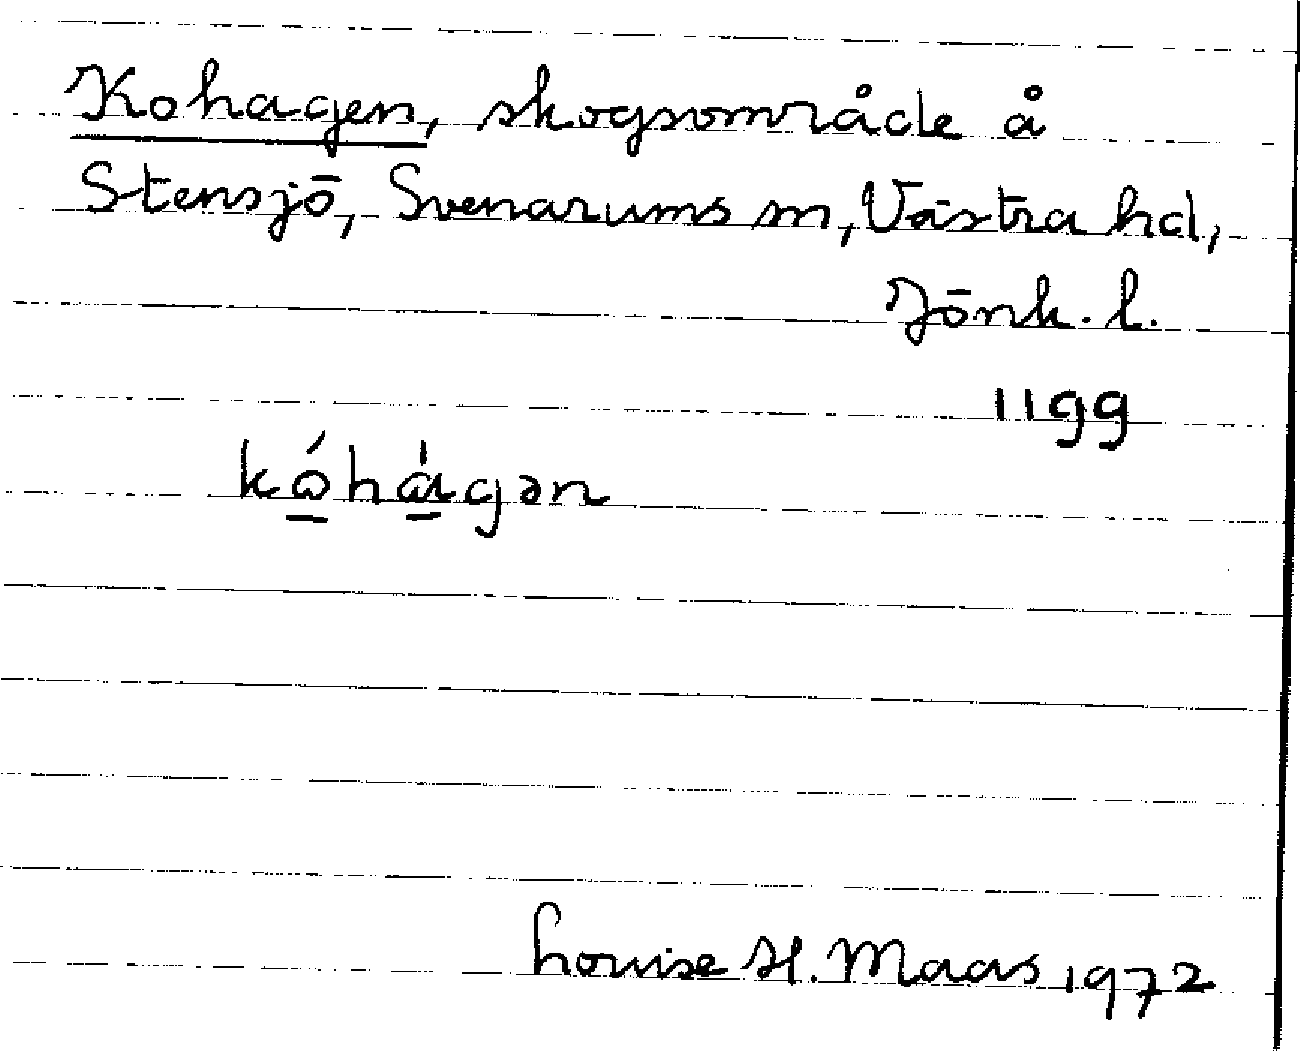 Kohagen, skogsområde å
Stensjö, Svenarums sn, Västra hd,
Jönk. l.
1199
kóhágən
Louise H. Maas 1972